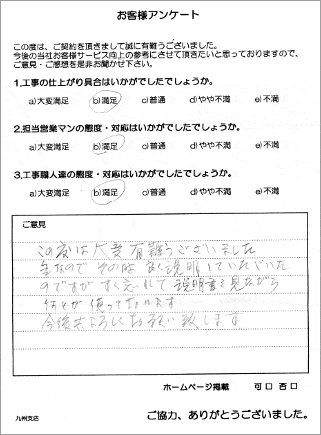 お客様アンケート
この度は、ご契約を頂きまして誠に有難うございました。
今後の当社お客様サービス向上の参考にさせて頂きたいと思っておりますので、
ご意見・ご感想を是非お聞かせ下さい。
1.工事の仕上がり具合はいかがでしたでしょうか。
a)大変満足 b)満足 c)普通 d)やや不満 e)不満
2.担当営業マンの態度・対応はいかがでしたでしょうか。
a)大変満足 b)満足 c)普通 d)やや不満 e)不満
3.工事職人達の態度・対応はいかがでしたでしょうか。
a)大変満足 b)満足 c)普通 d)やや不満 e)不満
ご意見
この度は大変有難うございました
なので その時 良く説明していただいた
のですが すぐ忘れて 説明書を見ながら
何とか使っております
今後共よろしくお願い致します
ホームページ掲載 可口 否口
九州支店
ご協力、ありがとうございました。